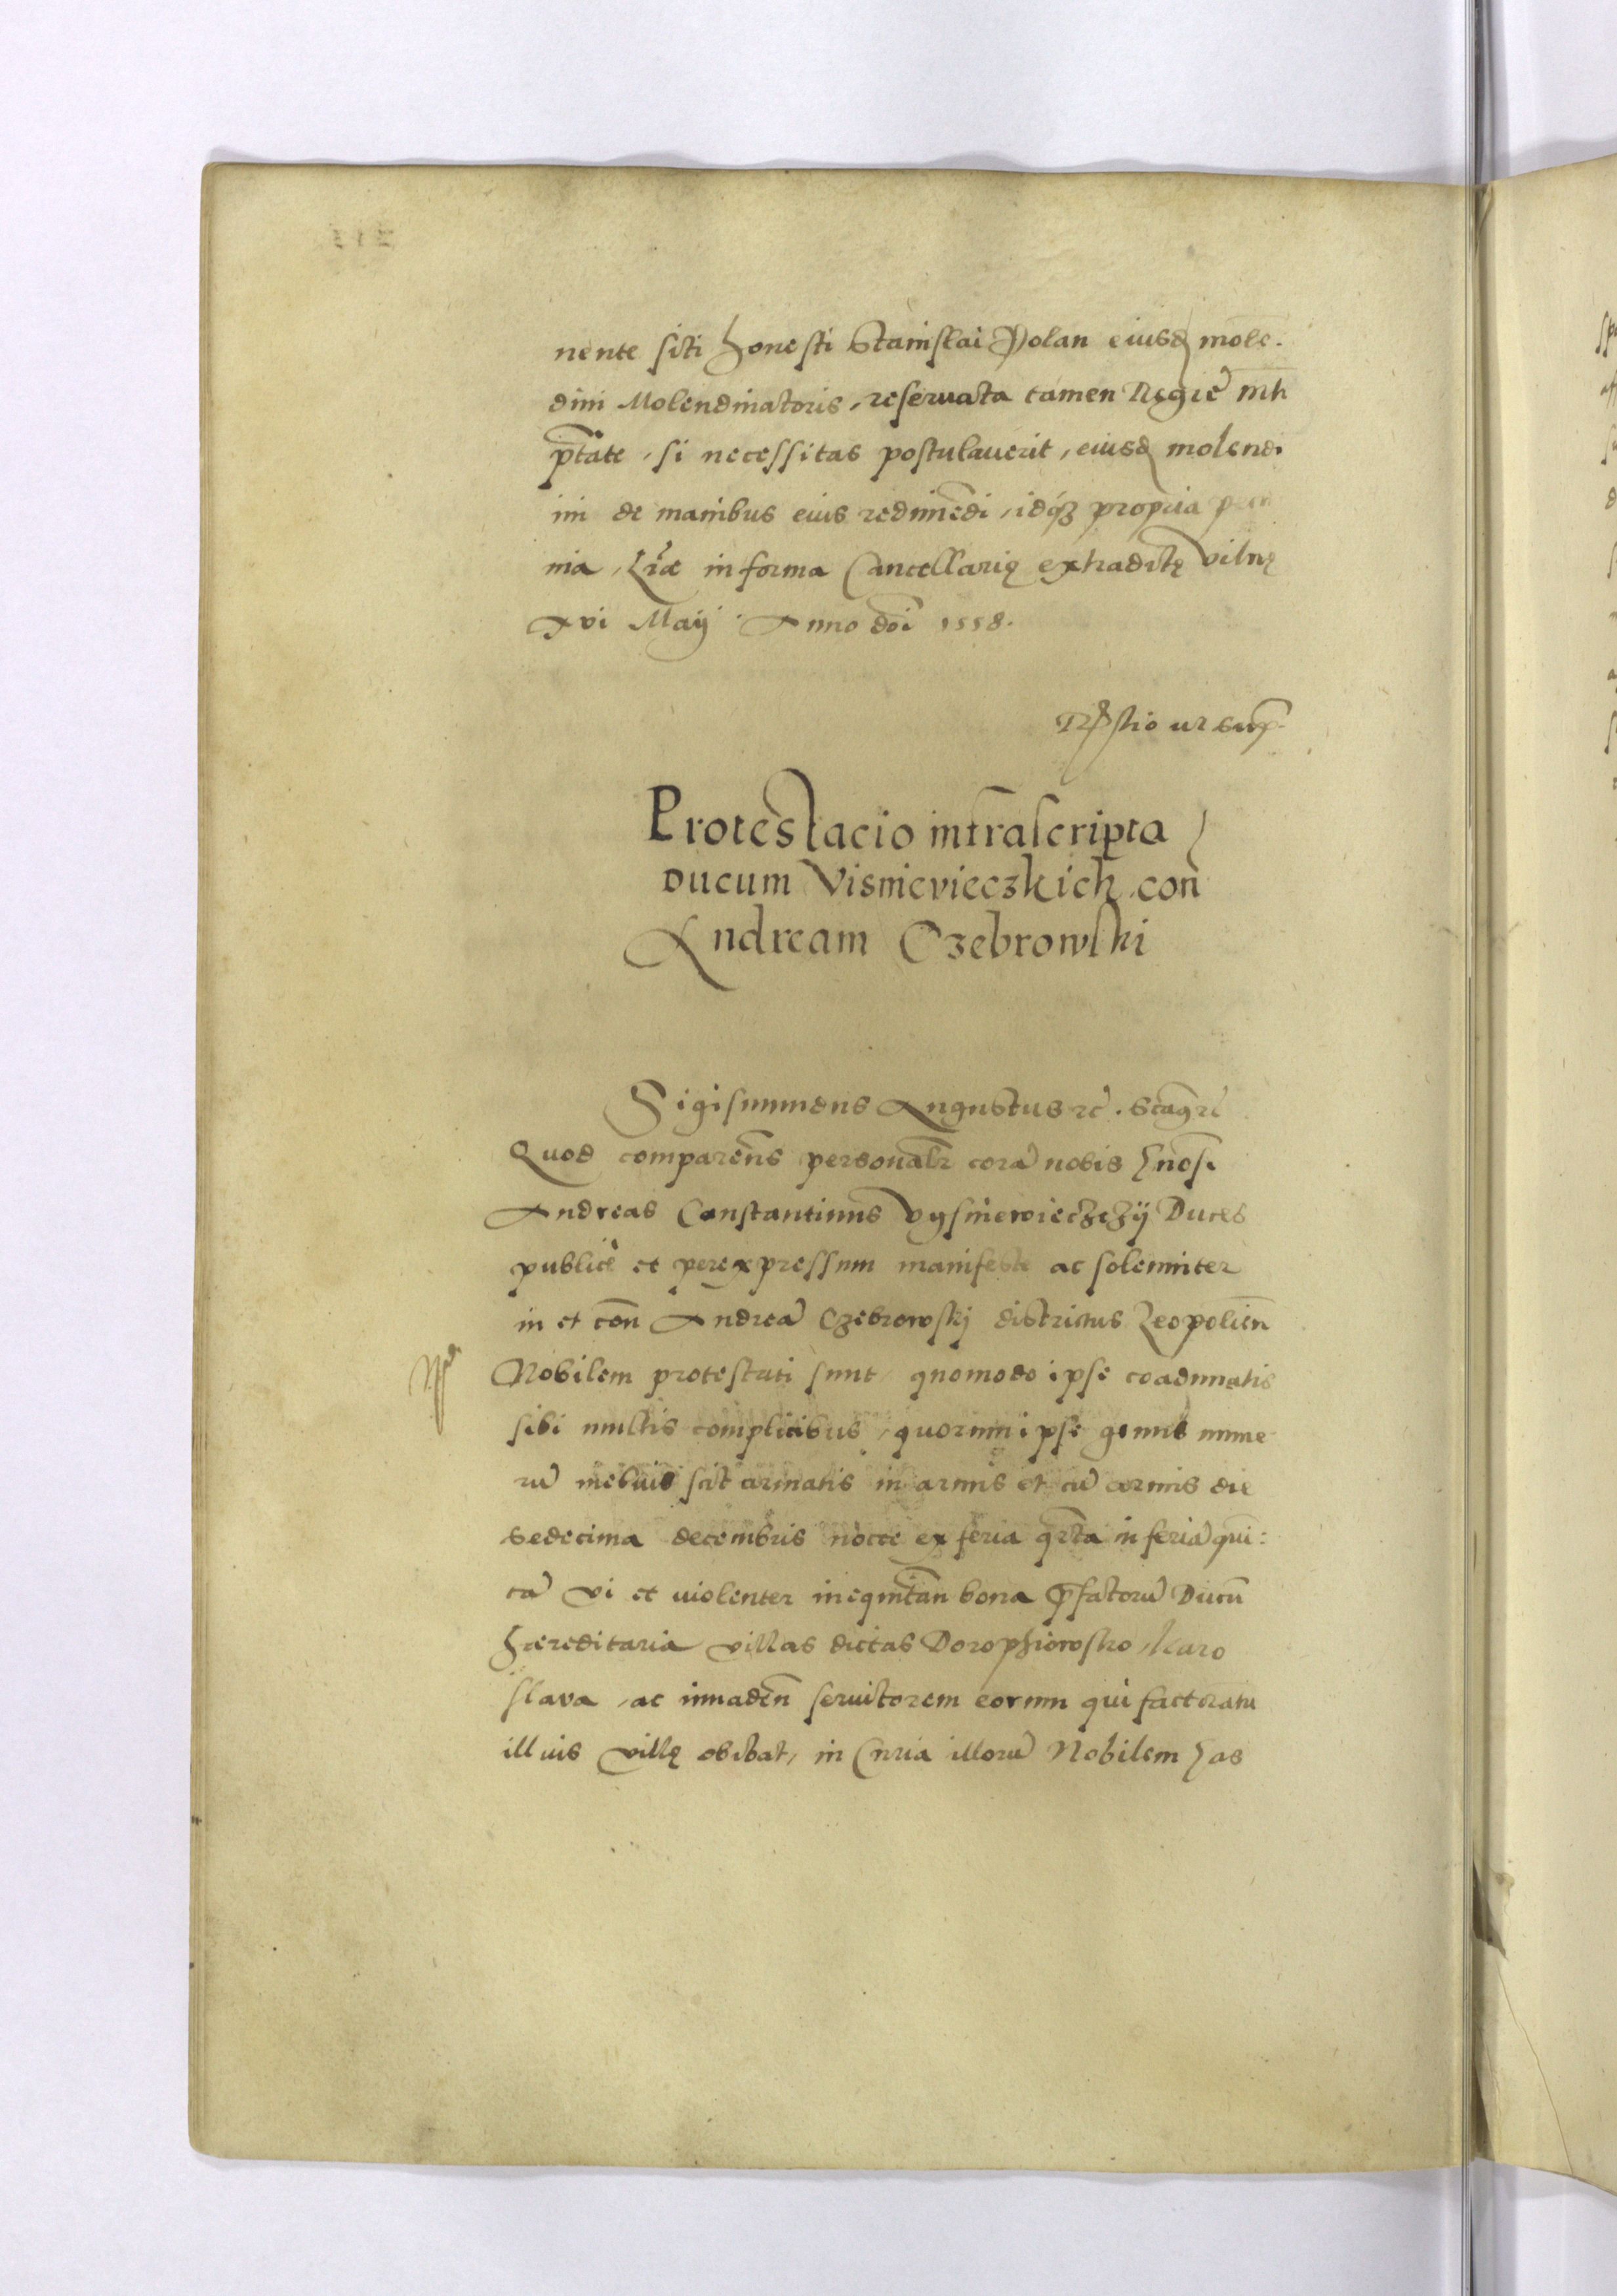 nente siti honesti Stanislai Polan eiusd mole-
dini Molendinatoris, reseruata tamen Regie Mti
ptate, si necessitas postulauerit, eiusd molendi
ni de manibus eius redimedi, idqz propria pecu
nia, Lrae in forma Cancellarię extraditę Vilnę
xvi Maij Anno doi 1558.
Rstio ut supra
Protestacio infrascripta
Ducum Visnievieczkich con
Andream Czebrowski
Sigismundus Augustus rc. stagrc
Quod comparens personalr cora nobis
Andreas Constantinus Vysniewieczczij Duces
publice et per expressum manifeste ac solemniter
in et con Andrea Czebrowskj districtus Leopolien
Nobilem protestati sunt, quomodo ipse coadunatis
sibi multis complicibus, quorum ipse genus nume
ru melius scit armatis in armis et cu armis die
sedecima decembris nocte ex feria qrta in feria quin:
ta vi et violenter inequitan bona pfatoru Ducu
haereditaria villas dictas Dorophiewsko, Karo
slava, ac inuaden seruitorem eorum qui factoratu
illius villę obibat, in Curia illoru Nobilem has